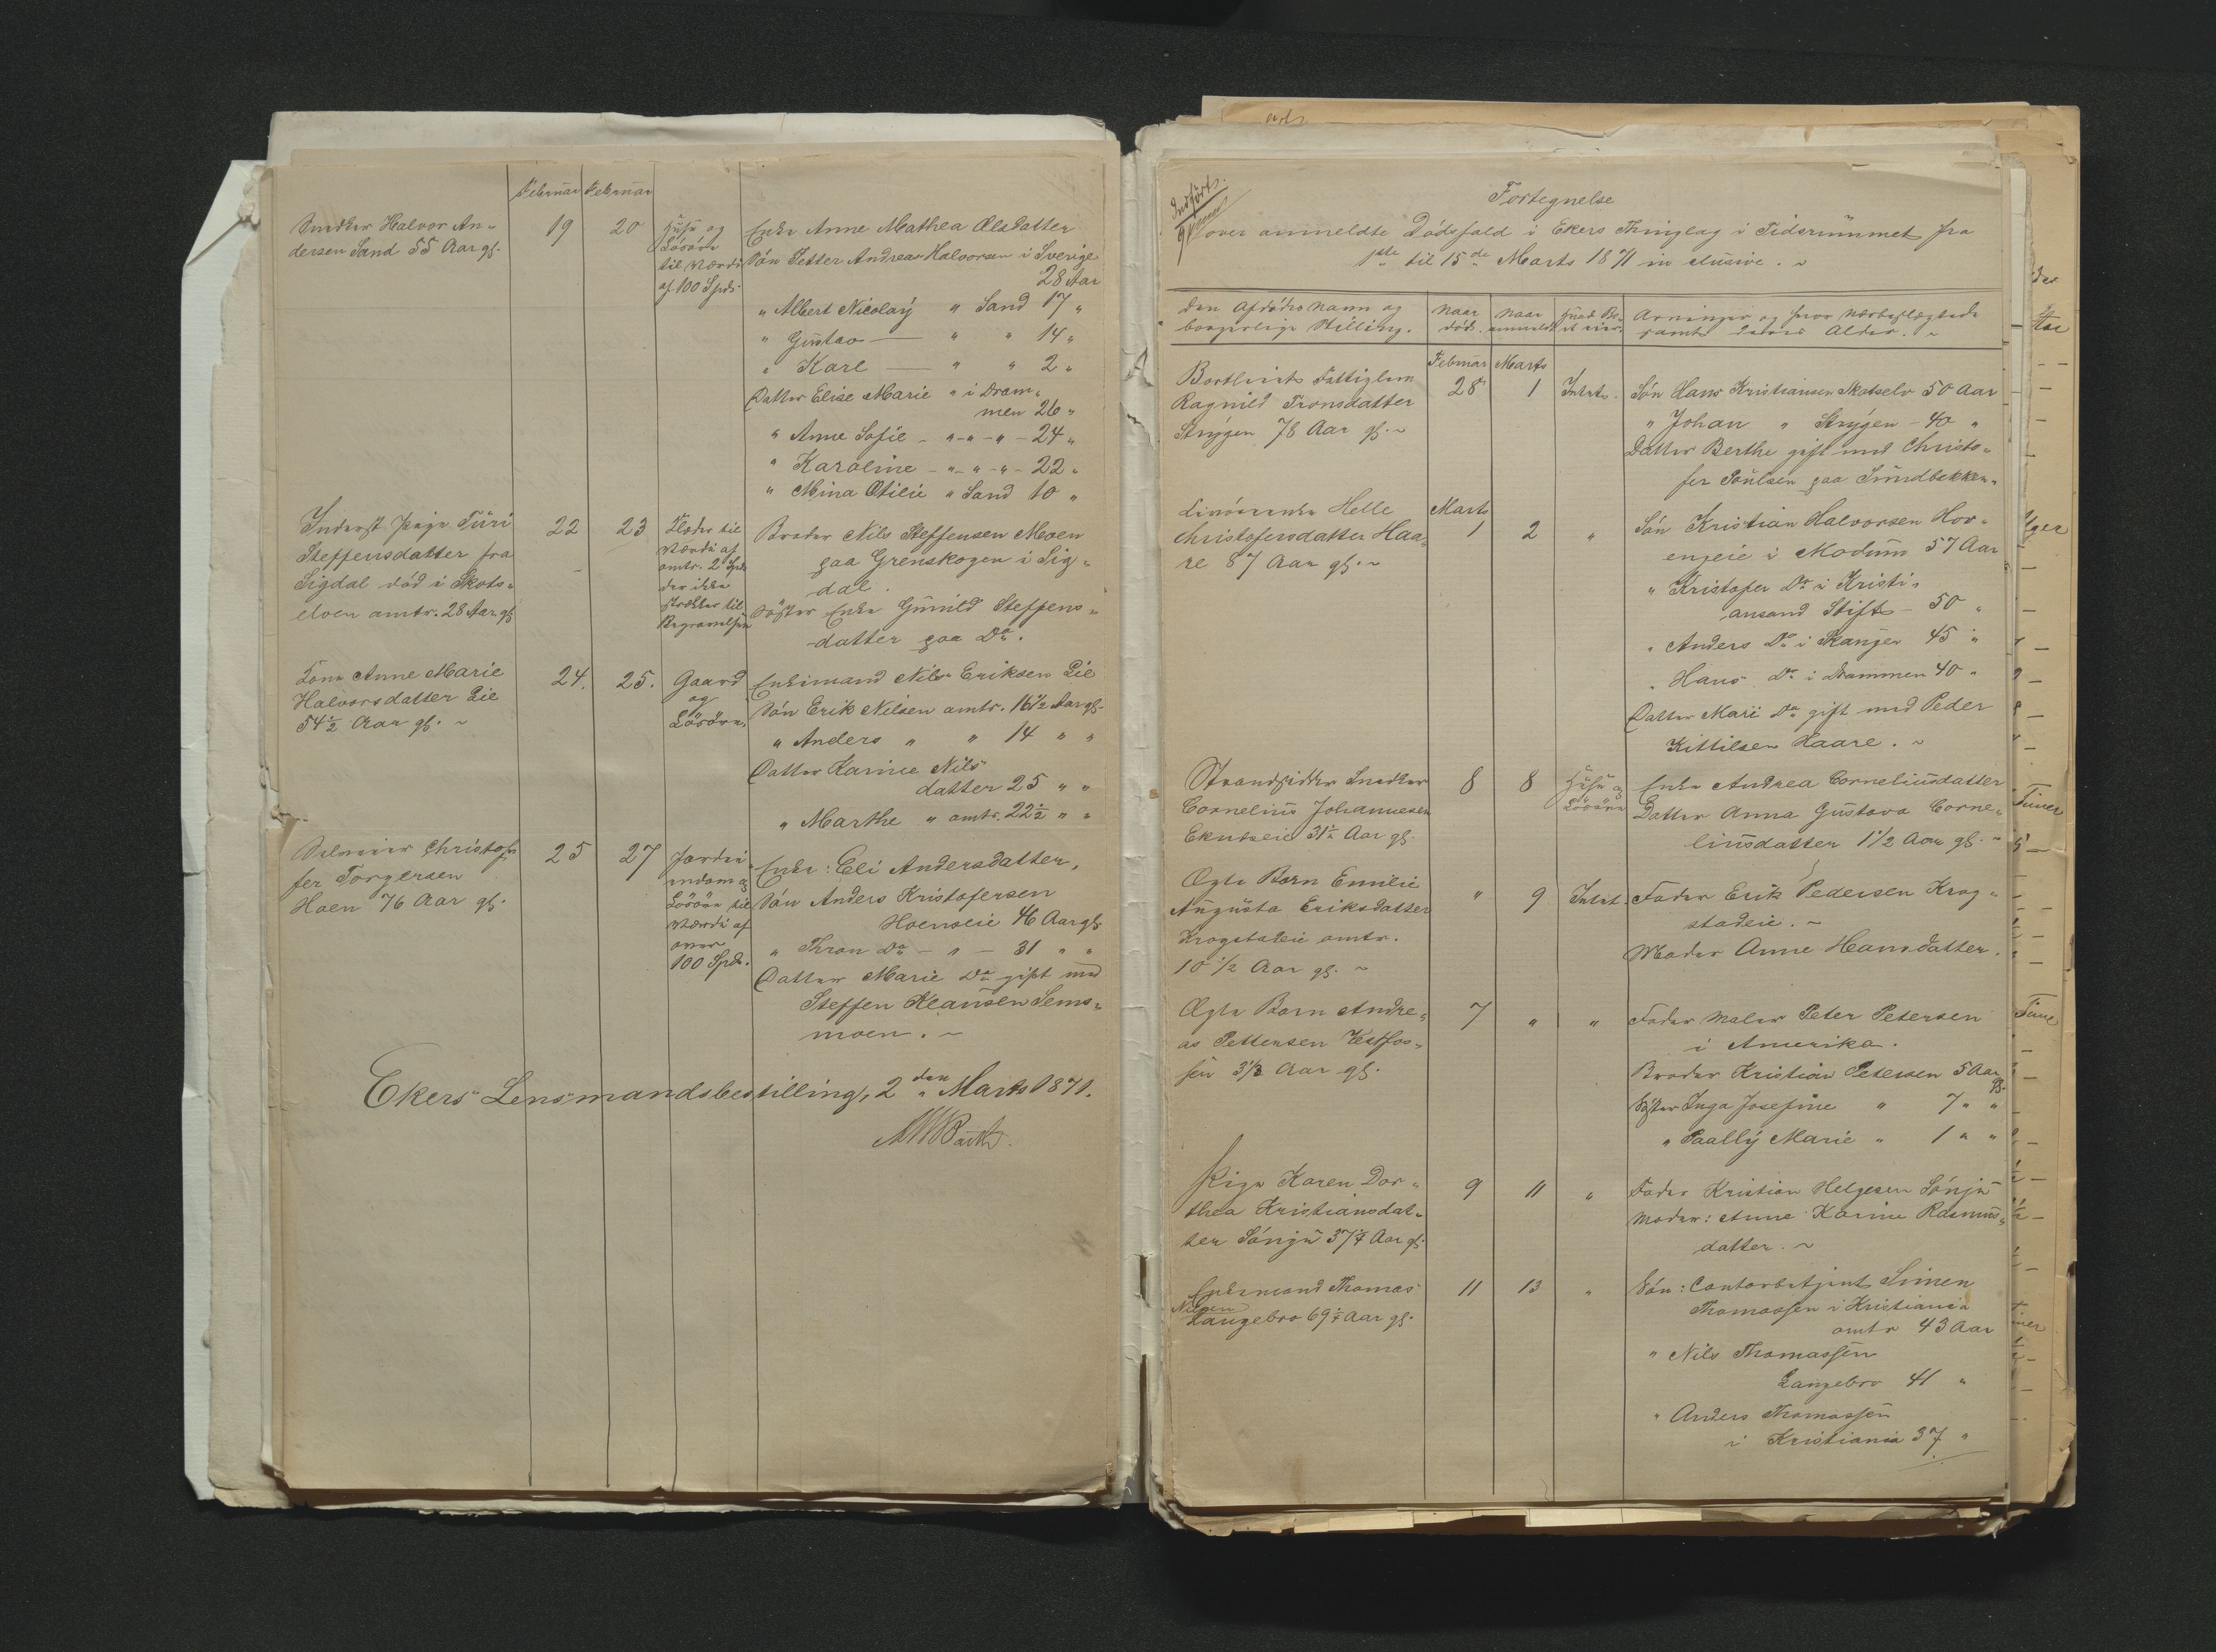 Februar Februar
Snedker Halvor An-
dersen Sand 55 Aar gl.
19 20
Huse og
Løsøre
til Værdi
af 100 Spd.
Enke Anne Mathea Olsdatter
Søn Petter Andreas Halvorsen i Sverige
28 Aar
" Albert Nicolaÿ " Sand 17 "
" Gustav — " " 14 "
" Karl — " " 2 "
Datter Elise Marie " i Dram-
men 26 "
" Anne Sofie - " - " - " - 24 "
" Karoline - " - " - " - 22 "
" Mina Otilie " Sand 10 "
Inderst Pige Turi
Steffensdatter fra
Sigdal død i Skots-
elven amtr. 28 Aar gl
22 23
Klæder til
Værdi af
omtr. 2 Spd.
der ikke
strækker til
Begravelsen
Broder Nils Steffensen Moen
paa Grenskogen i Sig-
dal.
Søster Enke Gunild Steffens-
datter paa Do.
Kone Anne Marie
Halvorsdatter Lie
54½ Aar gl. ~
24. 25.
Gaard
og
Løsøre.
Enkemand Nils Eriksen Lie
Søn Erik Nilsen amtr. 16½ Aar gl.
" Anders " " 14 " "
Datter Karine Nils-
datter 25 " "
" Marthe " amtr. 22½ " "
Selveier Christof-
fer Torgersen
Hoen 76 Aar gl.
25 27
Jordei-
endom og
Løsøre til
Værdi af
over
100 Spd.
Enke: Eli Andersdatter,
Søn Anders Kristofersen
Hoenseie 46 Aar gl.
" Thron Do - " - 31 " "
Datter Marie Da gift med
Steffen Klausen Sems-
moen. ~
Ekers Lensmandsbestilling, 2den Marts 1871.
Indført.
Fortegnelse
over anmeldte Dødsfald i Ekers Thinglag i Tidsrummet fra
1ste til 15de Marts 1871 inclusive. ~
Den Afdødes Navn og
borgerlige Stilling.
Naar
død.
Naar
anmeldt
Hvad Bo-
et eier.
Arvinger og hvor nærbeslægtede
samt deres Alder. ~
Februar Marts
Fattiglem
Ragnild Tronsdatter
Strÿgen 78 Aar gl. ~
28 1 Intet.
Søn Hans Kristiansen Skotselv 50 Aar
" Johan " Strÿgen - 40 "
Datter Berthe gift med Christo-
fer Poulsen paa Sundbakken.
Livøreenke Helle
Christofersdatter Haa-
re 87 Aar gl. ~
Marts
1 2 "
Søn Kristian Halvorsen Hov-
engeie i Modum 57 Aar
" Kristofer Do i Kristi-
ansand Stift - 50 "
" Anders Do i Skanger 45 "
" Hans Do i Drammen 40 "
Datter Mari Da gift med Peder
Kittilsen Haare. ~
Strandsidder Snedker
Cornelius Johannesen
Ekneseie 31½ Aar gl.
8 8
Huse og
Løsøre
Enke Andrea Corneliusdatter
Datter Anna Gustava Corne-
liusdatter 1½ Aar gl. ~
Ægte Barn Emilie
Augusta Eriksdatter
Krogstadeie amtr.
10½ Aar gl. ~
" 9 Intet.
Fader Erik Pedersen Krog-
stadeie. ~
Moder Anne Hansdatter.
Ægte Barn Andre-
as Pettersen Vestfos-
sen 3½ Aar gl.
7 " "
Fader Maler Peter Petersen
i Amerika.
Broder Kristian Petersen 5 Aar
gl.
Søster Inga Josefine " 7 " "
" Paallÿ Marie " 1 " "
Pige Karen Dor-
thea Kristiansdat-
ter Sønju 37¼ Aar gl.
9 11 "
Fader Kristian Helgesen Sønju
Moder: Anne Karine Rasmus-
datter. ~
Enkemand Thomas
Nilsen
Langebro 69¼ Aar gl.
11 13 "
Søn: Contorbetjent Simen
Thomassen i Kristiania
amtr 43 Aar
" Nils Thomassen
Langebro 41 "
" Anders Thomassen
i Kristiania 37 "